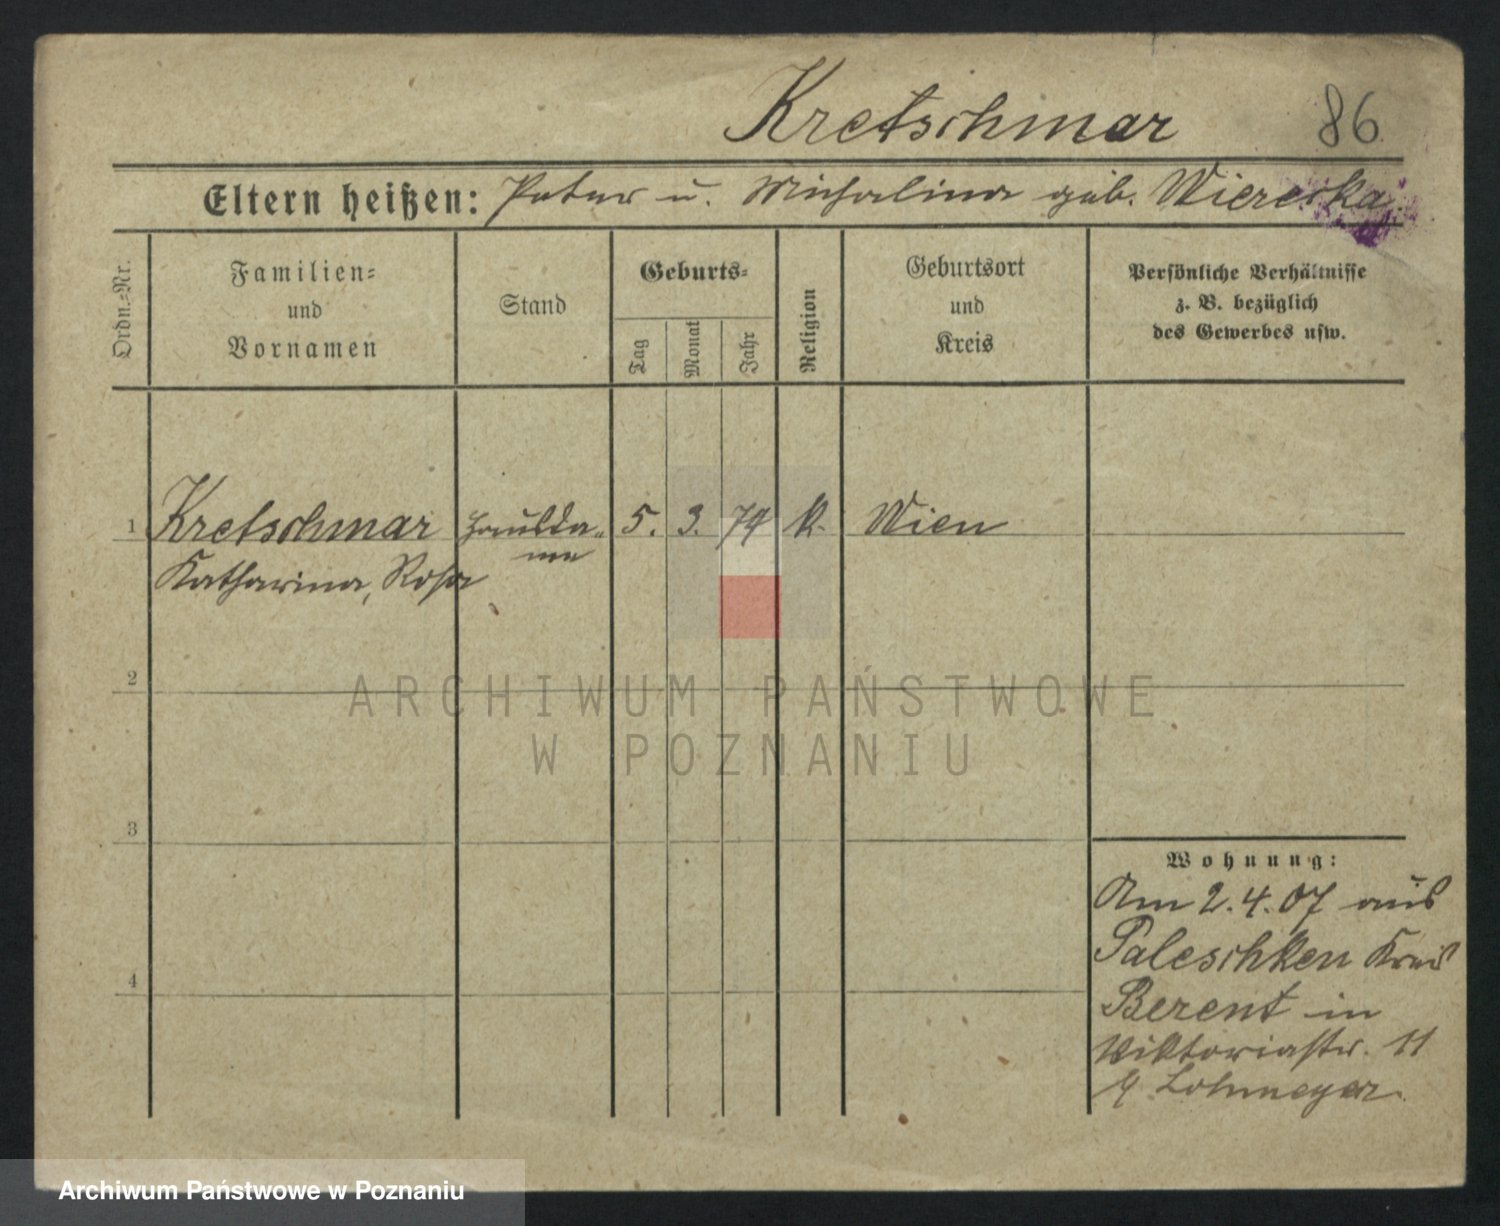 Kretschmar 86
Eltern heißen: Peter u. Michalina geb. Wiererska
Ordn.-Nr.
Familien-
und
Vornamen
Stand
Geburts-
Tag
Monat
Jahr
Religion
Geburtsort
und
Kreis
Persönliche Verhältnisse
z. B. bezüglich
des Gewerbes usw.
1 Kretschmar Hausda- 5. 3. 74 k. Wien
me
Katharina, Rosa
2
ARCHIWUM PAŃSTWOWE
W POZNANIU
3
Wohnung:
Am 2.4.07 aus
Paleschken Kreis
4
Berent in
Viktoriastr. 11
b. Lohmeyer.
Archiwum Państwowe w Poznaniu